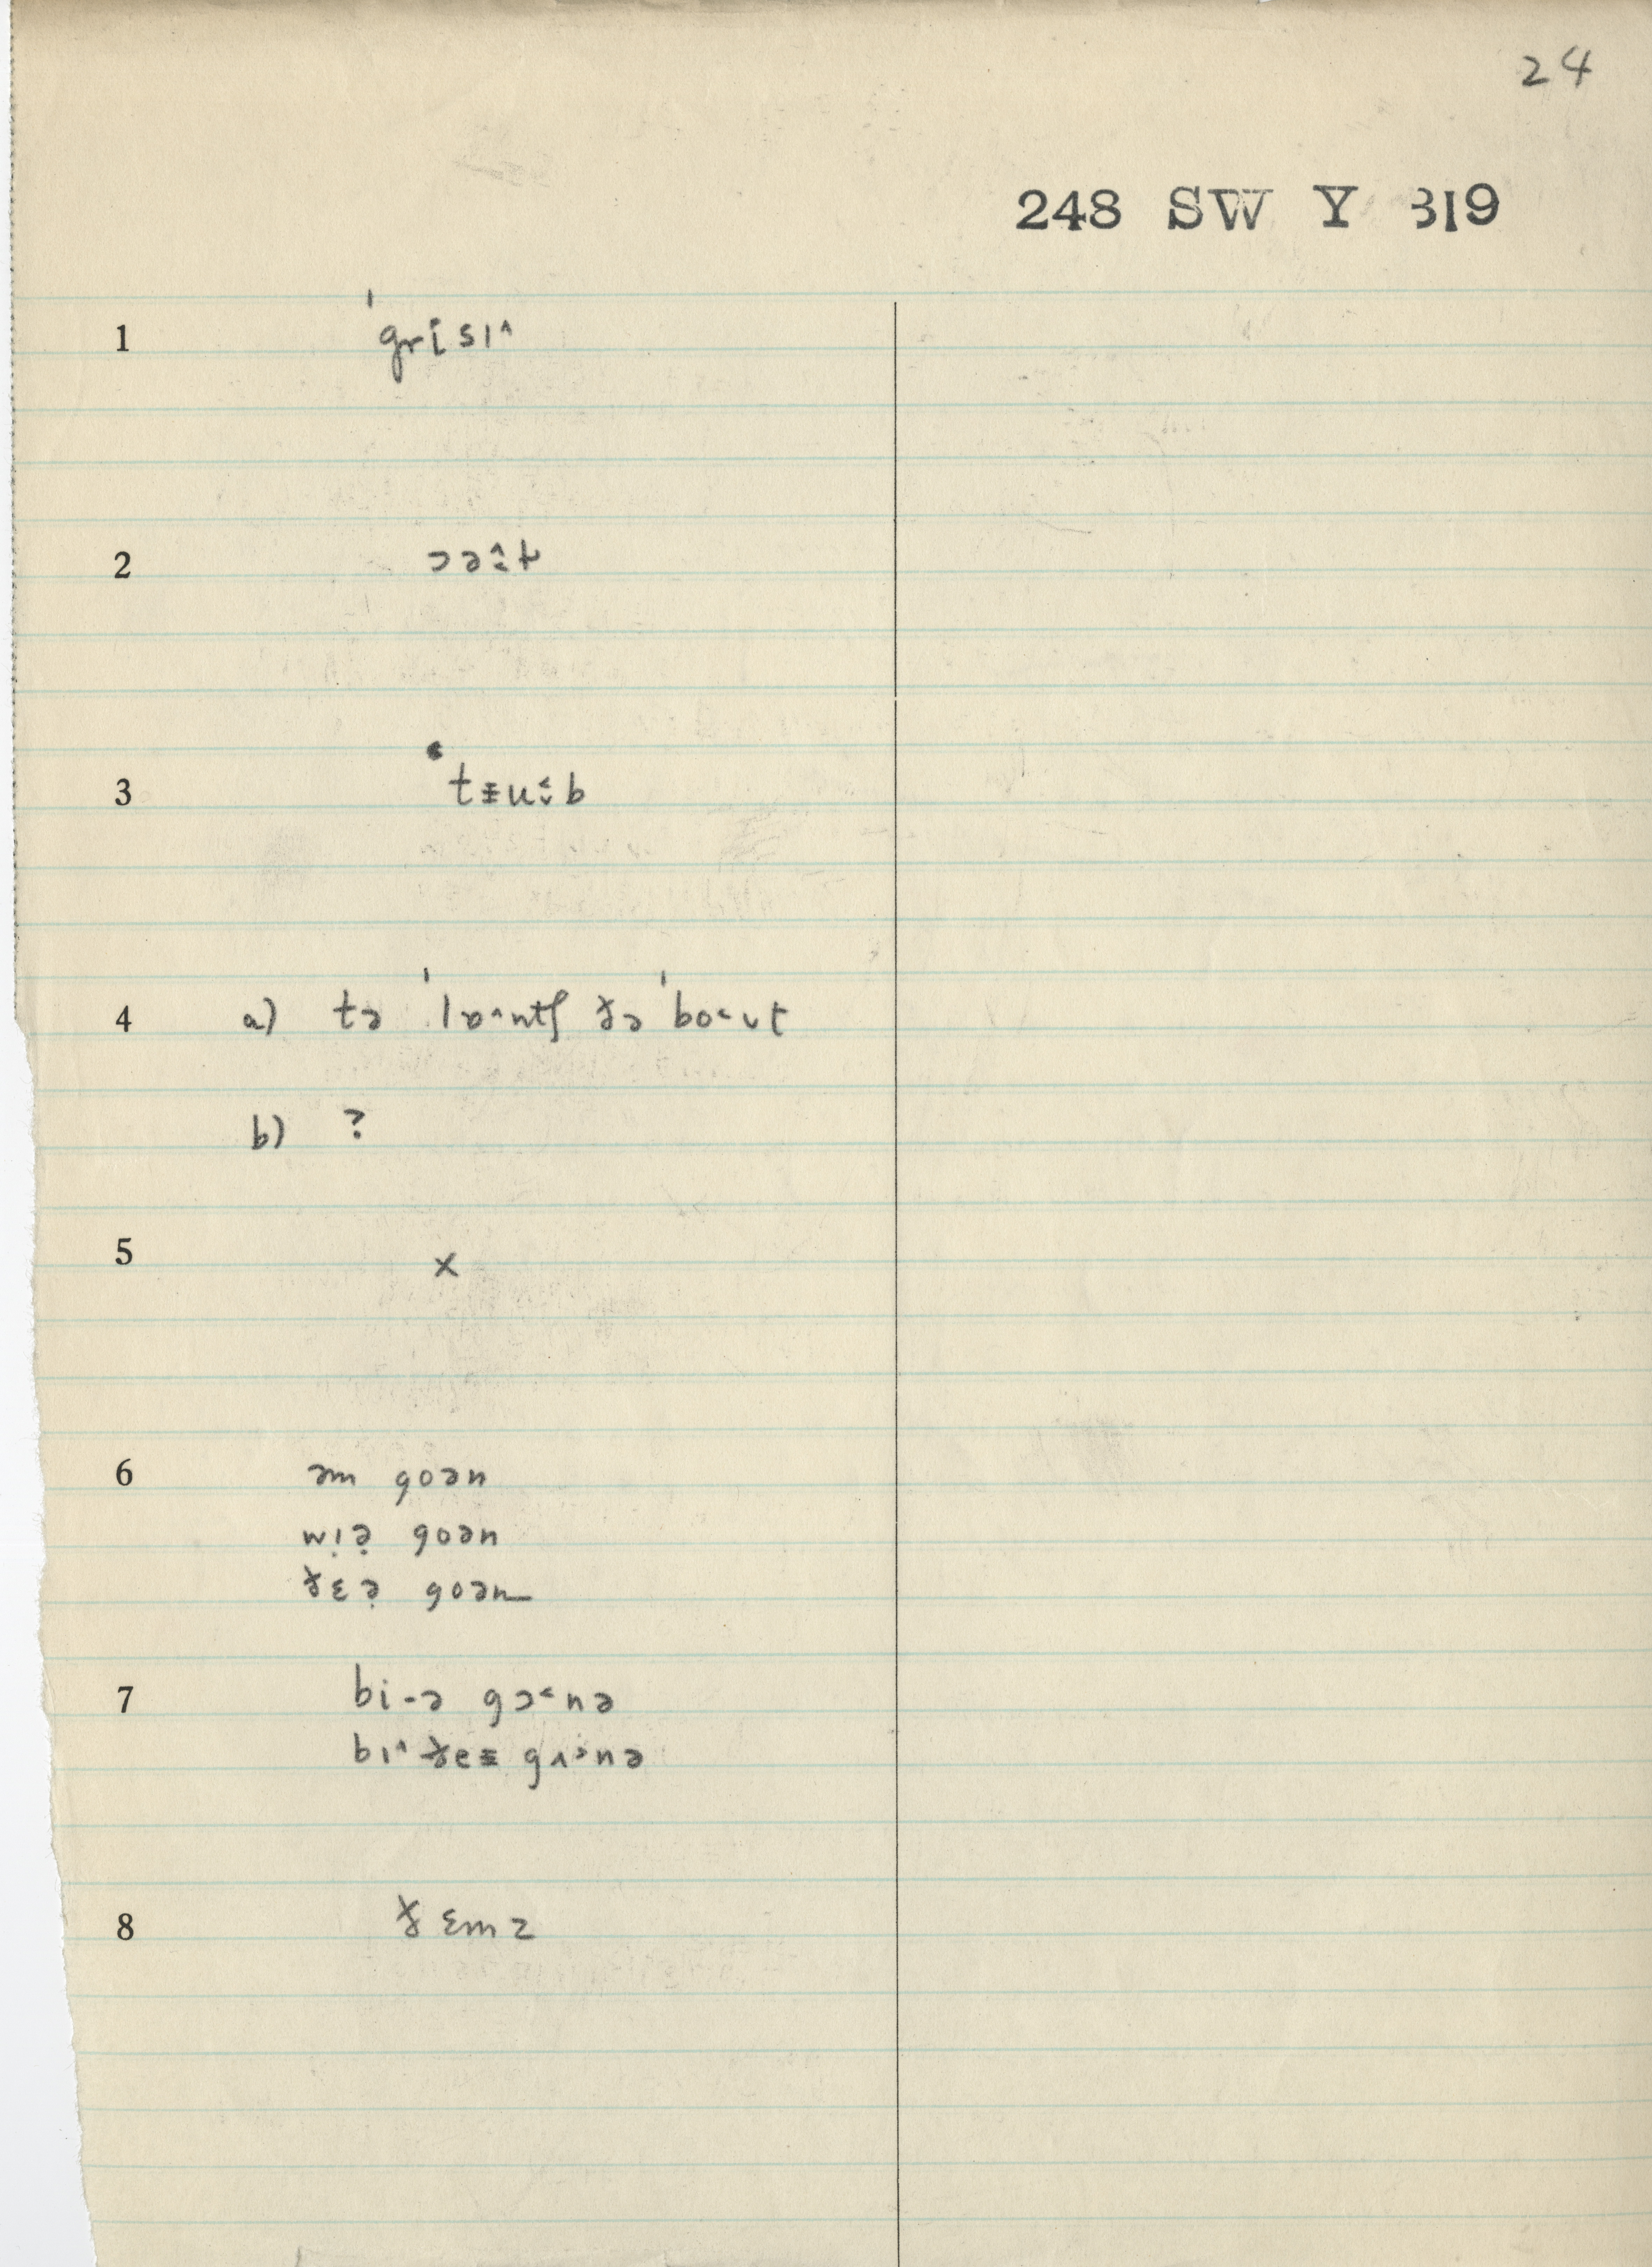 24
248 SW Y 319
1 ˈgri̞sɪ˄
2 ɔə˄˯t
3 t≢u˂˯b
4 a) tə ˈlɒ˄ntʃ ðə ˈbo˂ʊt
b) ?
5 x
6 əm goən
wɪ̣ə̣ goən
ðɛə̣ goən
7 bi-ə gɔ˂nə
bɪ˄ ðe≢ gʌ˃nə
8 ðɛmz